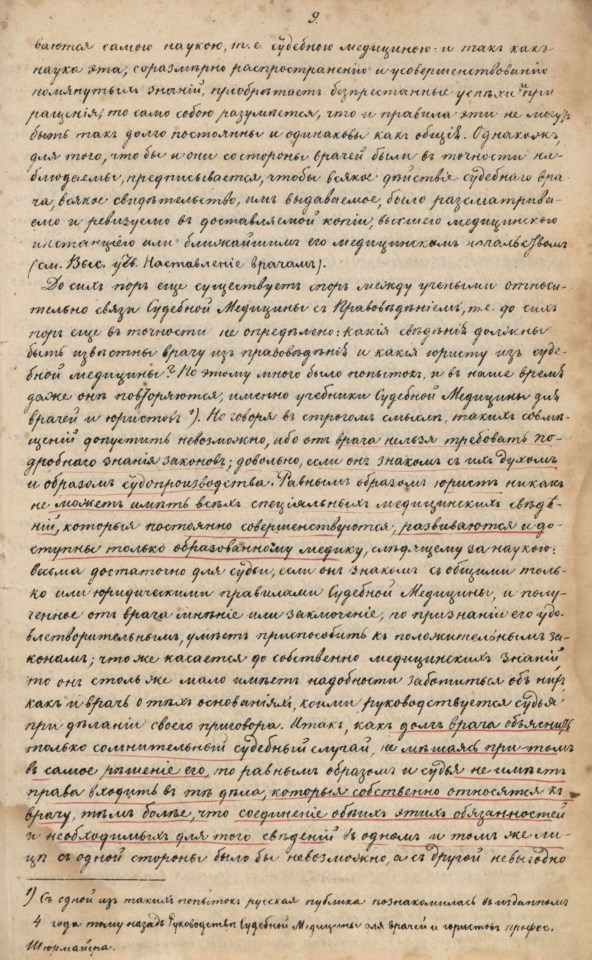 9.
ваются самою наукою, т. е. судебною медициною: и такъ какъ
наука эта, соразмѣрно распространенію и усовершенствованію
помянутыхъ знаній, пріобрѣтаетъ безпрестанные успѣхи и при
ращенія, то само собою разумѣется, что и правила эти не могутъ
быть такъ долго постоянны и одинаковы какъ общія. Однакожъ,
для того, что бы и они со стороны врачей были въ точности на-
блюдаемы, предписывается, чтобы всякое дѣйствіе судебнаго вра
ча, всякое свидѣтельство, имъ выдаваемое, было разсматрива-
емо и ревизуемо въ доставляемой копіи, высшею медицинскою
инстанціею или ближайшимъ его медицинскимъ начальствомъ
(см. Выс. утв. Наставленіе врачамъ).
До сихъ поръ еще существуетъ споръ между учеными относи-
тельно связи Судебной Медицины съ Правовѣдѣніемъ, т. е. до сихъ
поръ еще въ точности не опредѣлено: какія свѣдѣнія должны
быть извѣстны врачу изъ правовѣдѣнія и какія юристу изъ суде-
бной медицины? По этому много было попытокъ, и въ наше время
даже онѣ повторяются, именно учебники Судебной Медицины для
врачей и юристовъ ¹). Но говоря въ строгомъ смыслѣ, такихъ совмѣ-
щеній допустить невозможно, ибо отъ врача нельзя требовать по-
дробнаго знанія законовъ; довольно, если онъ знакомъ съ ихъ духомъ
и образомъ судопроизводства. Равнымъ образомъ юристъ никакъ
не можетъ имѣть всѣхъ спеціяльныхъ медицинскихъ свѣдѣ-
ній, которыя постоянно совершенствуются, развиваются и до-
ступны только образованному медику, слѣдящему за наукою:
весьма достаточно для судьи, если онъ знакомъ съ общими толь-
ко или юридическими правилами Судебной Медицины, и полу-
ченное отъ врача мнѣніе или заключеніе, по признаніи его удо-
влетворительнымъ, умѣетъ приспособить къ положительнымъ за-
конамъ; что же касается до собственно медицинскихъ знаній
то онъ столь же мало имѣетъ надобности заботиться объ нихъ,
какъ и врачъ о тѣхъ основаніяхъ, коими руководствуется судья
при дѣланіи своего приговора. Итакъ, какъ долгъ врача объяснить
только сомнительный судебный случай, не мѣшаясь при томъ
въ самое рѣшеніе его, то равнымъ образомъ и судья не имѣетъ
права входить въ тѣ дѣла, которыя собственно относятся къ
врачу, тѣмъ болѣе, что соединеніе обѣихъ этихъ обязанностей
и необходимыхъ для того свѣденій въ одномъ и томъ же ли-
цѣ съ одной стороны было бы невозможно, а съ другой невыгодно
¹) Съ одной изъ такихъ попытокъ русская публика познакомилась въ изданномъ
4 года тому назадъ Руководствѣ Судебной Медицины для врачей и юристовъ профес.
Шюрмайера.